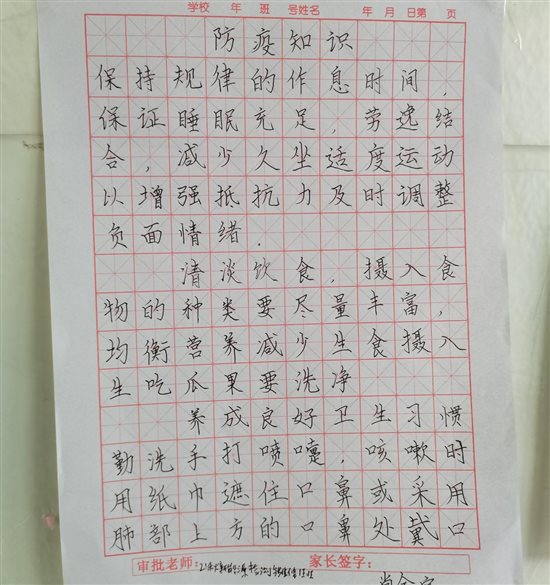 学校 年 班 号姓名 年 月 日第 页
防疫知识
保持规律的作息时间,
保证睡眠充足,劳逸结
合,减少久坐适度运动
以增强抵抗力及时调整
负面情绪.
清淡饮食,摄入食
物的种类要尽量丰富,
均衡营养减少生食摄入
生吃瓜果要洗净
养成良好卫生习惯
勤洗手打喷嚏,咳嗽时
用纸巾遮住口鼻或采用
肺部上方的口鼻处戴口
审批老师: 家长签字: